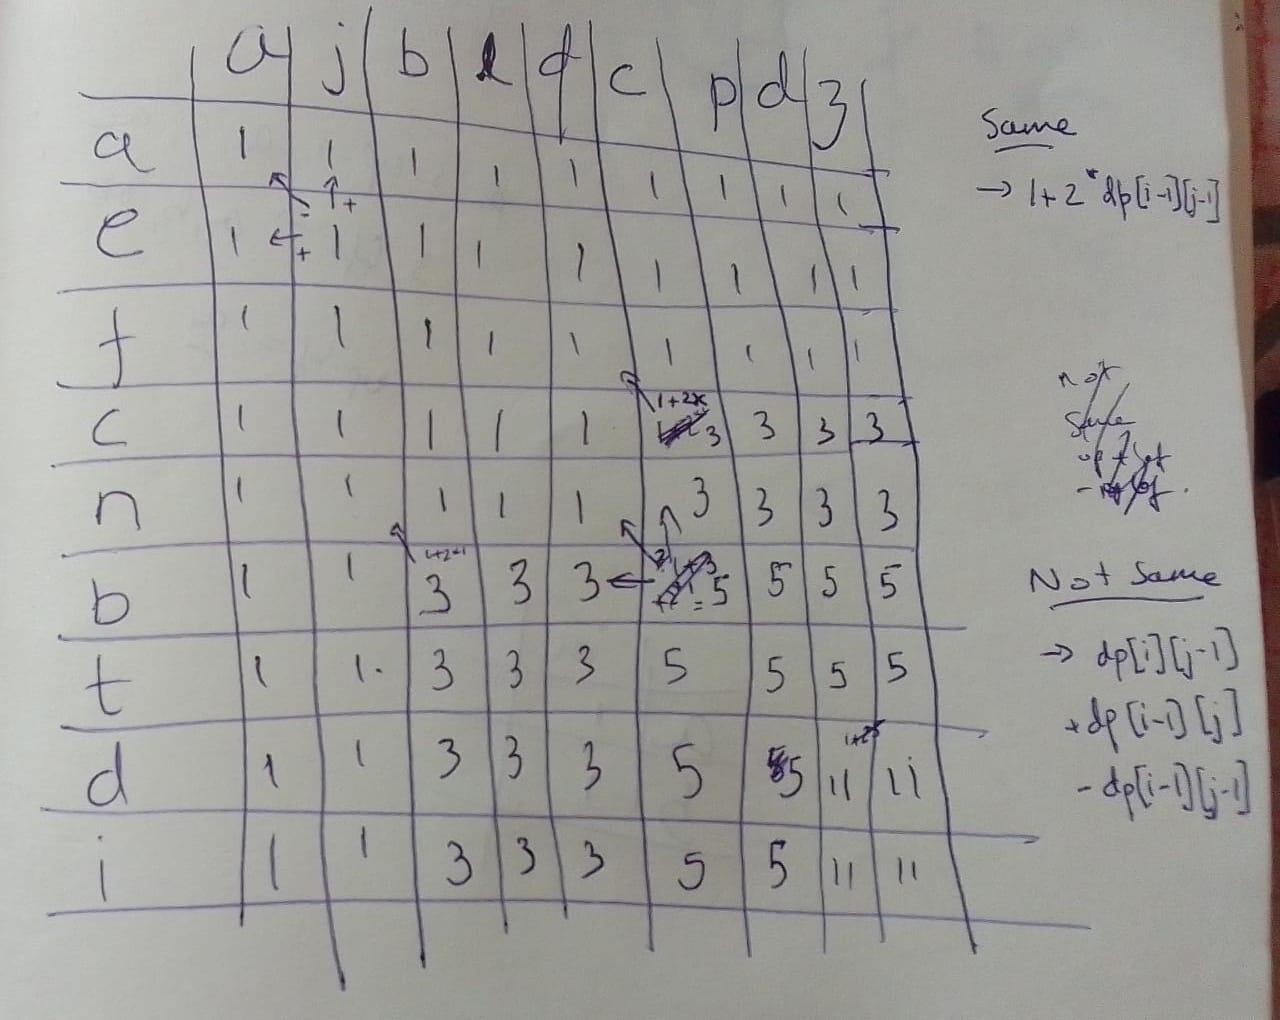 a j b l f c p d z
a 1 1 1 1 1 1 1 1 1
e 1 1 1 1 1 1 1 1 1
f 1 1 1 1 1 1 1 1 1
c 1 1 1 1 1 1+2x 3 3 3 3
n 1 1 1 1 1 3 3 3 3
b 1 1 3 3 3 =5 5 5 5
t 1 1 3 3 3 5 5 5 5
d 1 1 3 3 3 5 5 11 11
i 1 1 3 3 3 5 5 11 11
Same
→ 1+2*dp[i-1][j-1]
not
same
Not Same
→ dp[i][j-1]
+dp[i-1][j]
-dp[i-1][j-1]